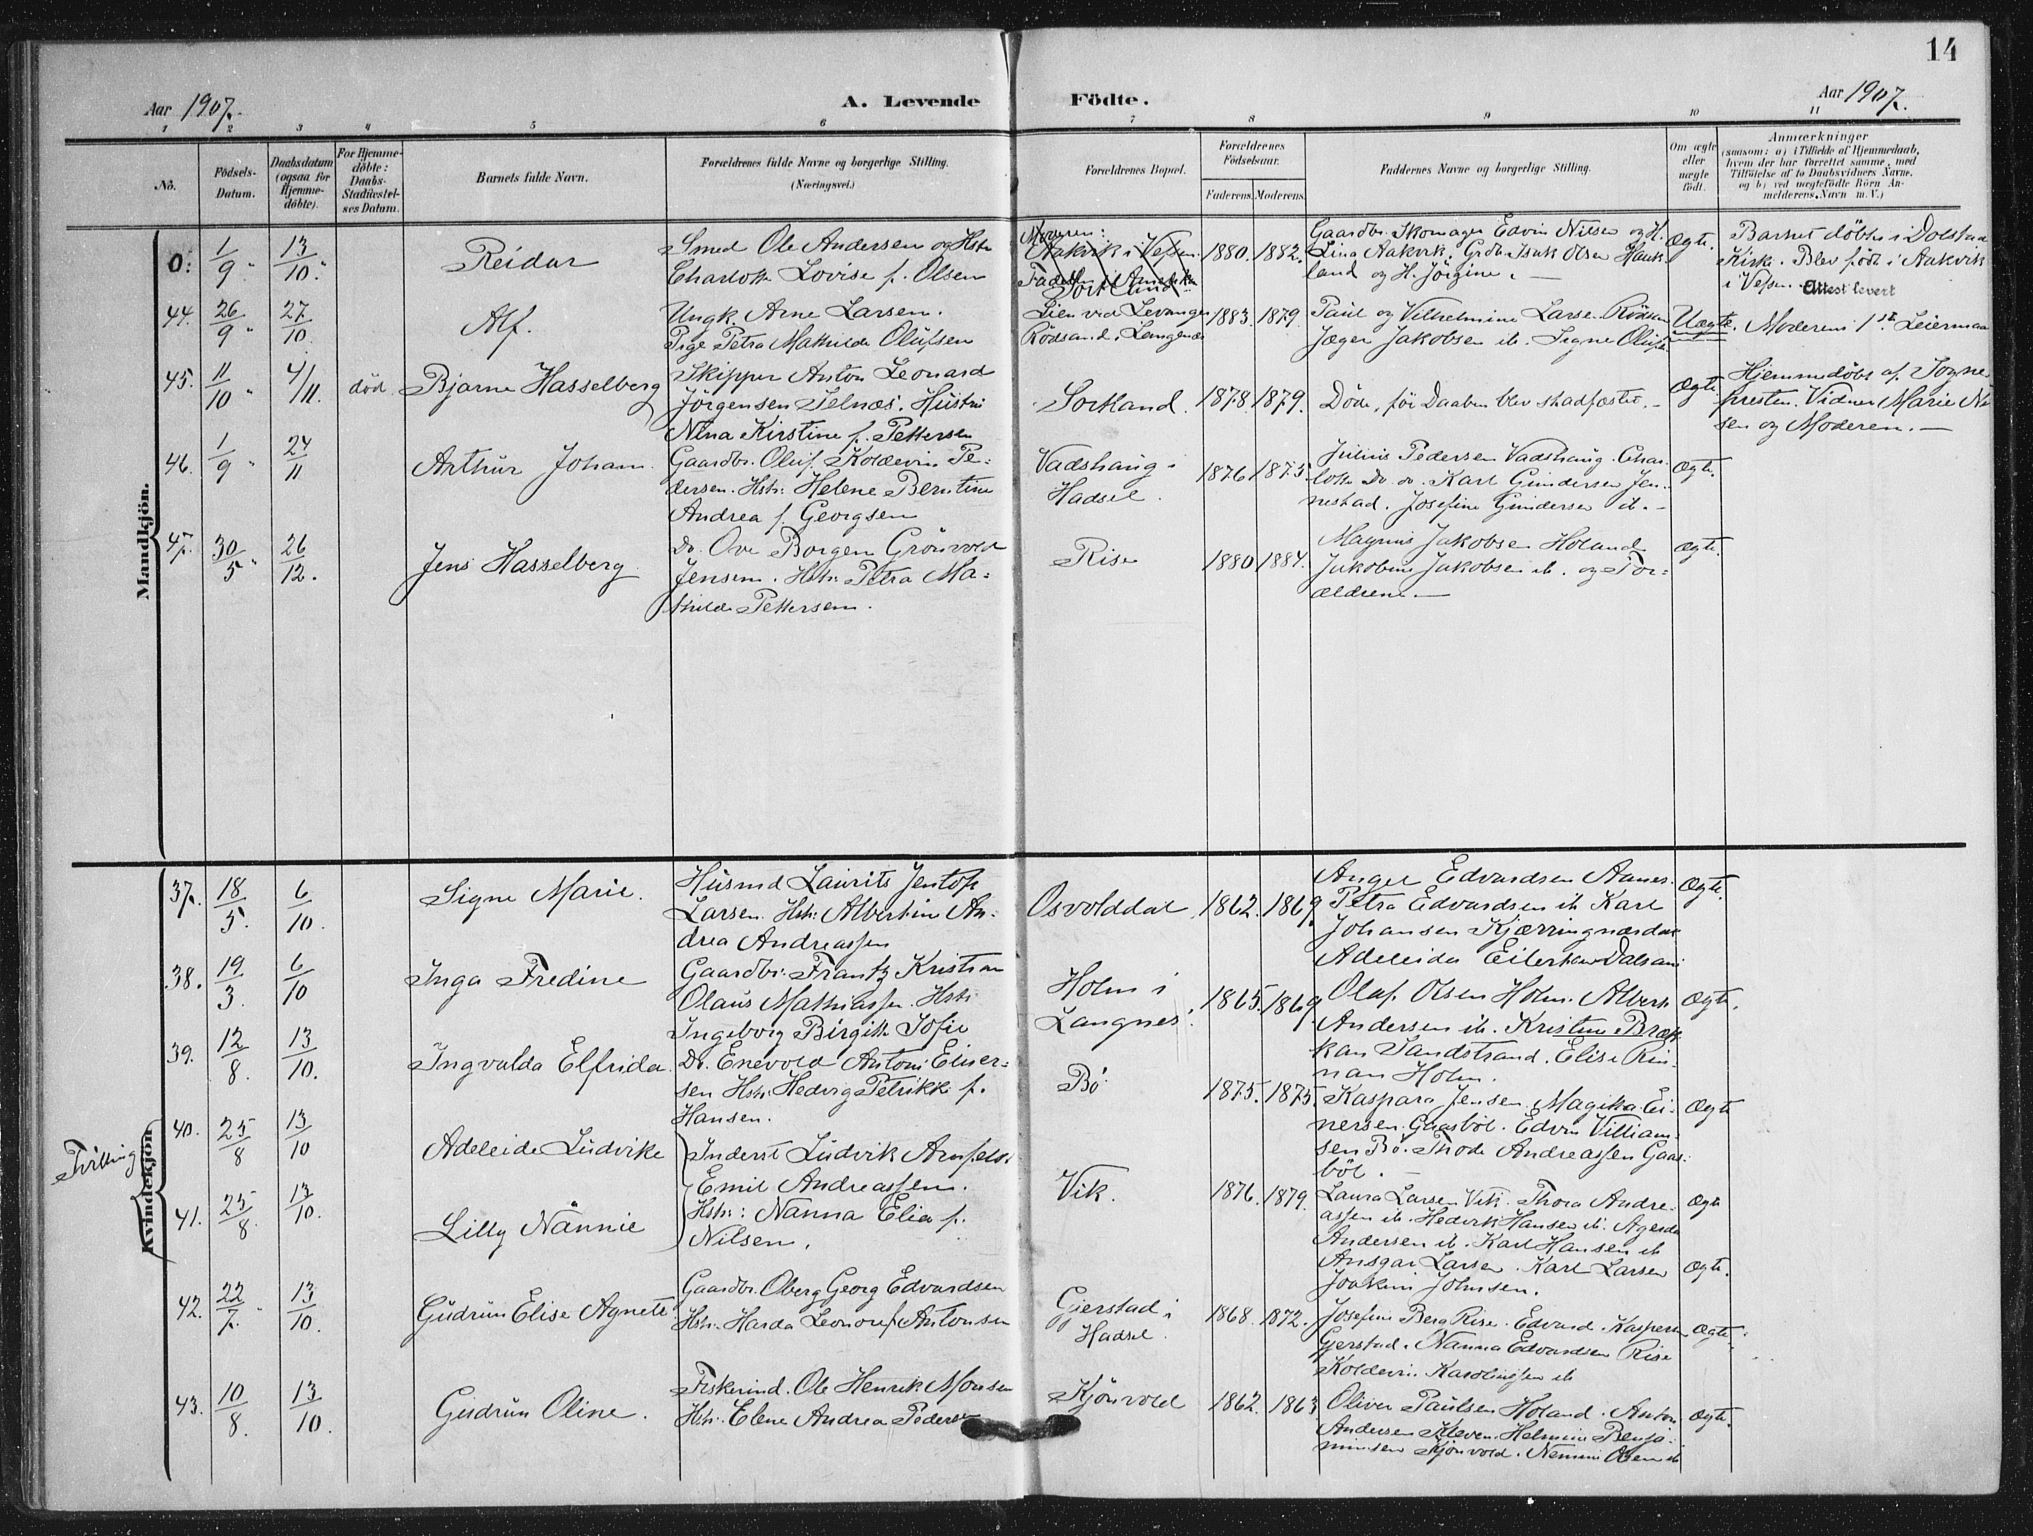 14
Aar 1907.
A. Levende Födte.
Aar 1907.
1 2 3 4 5 6 7 8 9 10 11
No.
Födsels-
Datum.
Daabsdatum
(ogsaa for
Hjemme-
döbte).
For Hjemme-
döbte:
Daabs-
Stadfæstel-
ses Datum.
Barnets fulde Navn.
Forældrenes fulde Navne og borgerlige Stilling.
(Næringsvei.)
Forældrenes Bopæl.
Forældrenes
Födselsaar.
Faderens. Moderens.
Faddernes Navne og borgerlige Stilling.
Om ægte
eller
uægte
födt.
Anmærkninger
(saasom: a) i Tilfælde af Hjemmedaab,
hvem der har forrettet samme, med
Tilföielse af to Daabsvidners Navne.
og b) ved uægtefödte Börn An-
melderens Navn m. V.)
Mandkjön.
0: 1/9 " 13/10 "
Reidar
Smed Ole Andersen og Hstr
Charlotte Lovise f. Olsen
Moderen:
Aakvik i Vefsen
Faderen i Amerika
Sortland
1880. 1882.
Gaardbr. Skomager Edvin Nilsen og H.
Lina Aakvik. Grdbr. Isak Olsen Hauk-
land og H. Jörgine. —
Ægte.
Barnet döbt i Dolstad
Kirke. Blev födt i Aakvik
i Vefsn. Attest levert
44. 26/9 " 27/10
Alf.
Ungk. Arne Larsen.
Pige Petra Mathilde Olufsen
Lien ved Levanger
Rödsand, Langenes
1883. 1879.
Paul og Vilhelmine Larse. Rödsan
Jæger Jakobsen ib. Signe Olufse
Uægte.
Moderens 1ste Leiermaa
45. 11/10 " 4/11. död.
Bjarne Hasselberg
Skipper Anton Leonard
Jörgensen Selnæs. Hustru
Nina Kirstine f. Pettersen
Sortland.
1878. 1879.
Döde, för Daaben blev stadfæstet. —
Ægte
Hjemmedöbt af Sogne
presten. Vidner Marie Ni
sen og Moderen. —
46. 1/9 " 24/11
Arthur Johan.
Gaardbr. Oluf Koldevin Pe-
dersen. Hstr: Helene Berntine
Andrea f. Georgsen
Vadshaug i
Hadsel.
1876 1875.
Julius Pedersen Vadshaug. Char-
lotte Do do. Karl Gundersen Jen-
nestad. Josefine Gundersen ib. —
Ægte.
47. 30/5 " 26/12.
Jens Hasselberg
Do. Ove Borgen Grönvold
Jensen. Hstr: Petra Ma-
thilde Pettersen.
Rise
1880 1884.
Magnus Jakobsen Holand
Jakobine Jakobsen ib. og For-
ældrene. —
Ægte.
Kvindekjön
37. 18/5. 6/10.
Signe Marie.
Husmd Laurits Jentoft
Larsen. Hstr: Albertine An-
drea Andreassen
Osvolddal
1862. 1869.
Anger Edvardsen Aanes.
Petra Edvardsen ib Karl
Johansen Kjærringnesdal
Adeleide Eilertsen Dalsan
Ægte.
38. 19/3. 6/10
Inga Fredine
Gaardbr. Frantz Kristian
Olaus Mathiassen. Hstr
Ingeborg Birgitte Sofie
Holm i
Langnes.
1865. 1869
Olaf Olsen Holm. Albert
Andersen ib. Kristine Bræk
kan Sandstrand. Elise Rin-
nan Holm.
Ægte.
39. 12/8. 13/10.
Ingvalda Elfrida.
Do. Enevold Antoni Einer-
sen Hstr. Hedvig Petrikke f.
Hansen.
Bö
1875. 1875.
Kaspara Jensen. Magika Ei-
nersen. Gaasböl. Edvin Villiam-
sen Bö. Thode Andreassen Gaas-
böl. —
Ægte
Tvilling
40. 25/8 13/10
Adeleide Ludvike
Inderst Ludvik Arnfelt
Emil Andreassen.
Hstr: Nanna Elier f.
Nilsen.
Vik.
1876. 1879.
Laura Larsen Vik. Thora Andre-
assen ib. Hedvik Hansen ib. Agenda
Andersen ib. Karl Hansen ib
Ægte
41. 25/8. 13/10.
Lilly Nannie
Ansgar Larsen. Karl Larsen
Joakim Johnsen.
Ægte.
42. 22/7. " 13/10.
Gudrun Elise Agnete
Gaardbr. Oberg Georg Edvardsen
Hstr. Harda Leonore f Antonsen
Gjerstad i
Hadsel.
1868. 1872.
Josefine Berg Rise. Edvard Kaspersen
Gjerstad. Nanna Edvardsen Rise
Koldevin Karolinssen ib
Ægte.
43. 10/8. 13/10.
Gudrun Oline.
Fiskerind. Ole Henrik Monsen
Hstr. Elene Andrea Pedersen
Kjönvold
1862. 1863
Oliver Paulsen Holand. Anton
Andersen Kleven. Helmine Benja-
minsen Kjönvold. Nemmi Olsen ib
Ægte.